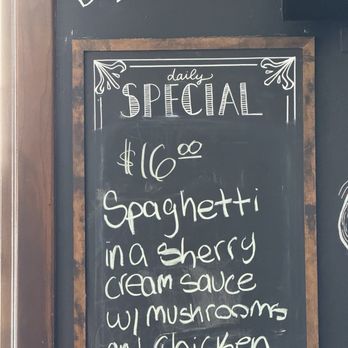 daily
SPECIAL
$16.00
Spaghetti
in a Sherry
cream sauce
w/ mushrooms
and chicken